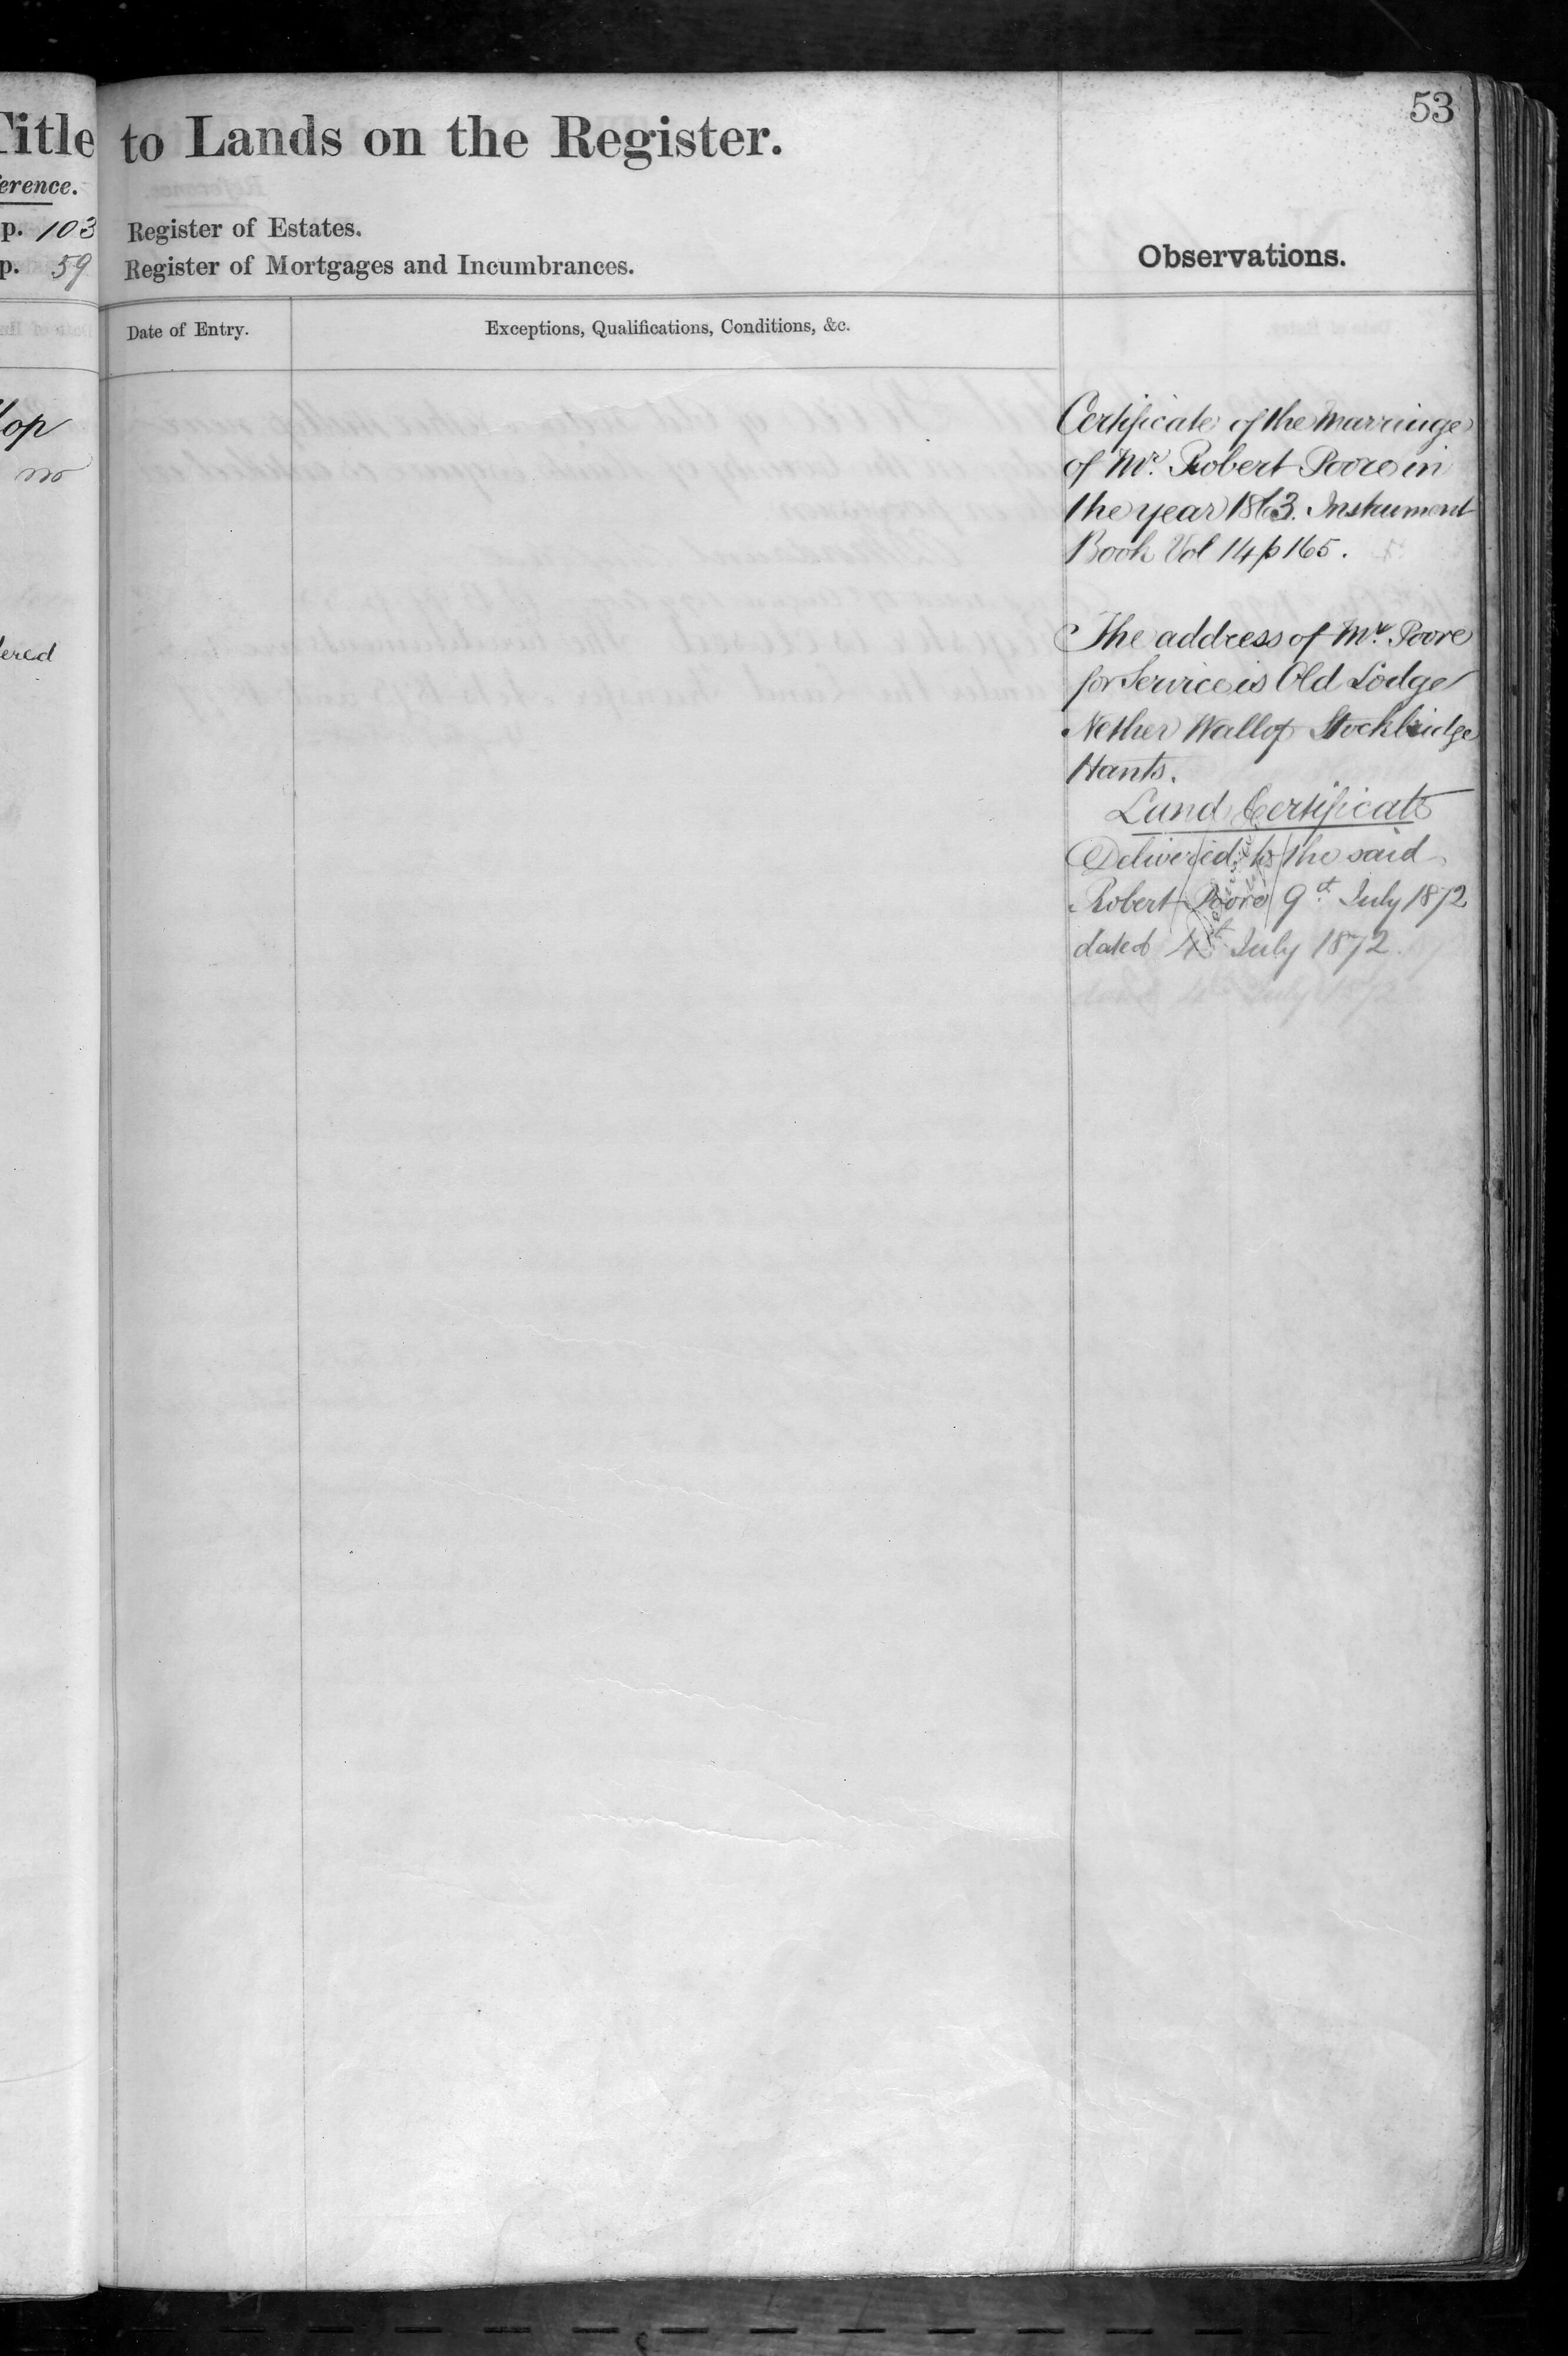 53
Title to Lands on the Register.
erence.
p. 103 Register of Estates.
p. 59 Register of Mortgages and Incumbrances.
Observations.
Date of Entry.
Exceptions, Qualifications, Conditions, &c.
lop
no
ered
Certificate of the Marriage
of Mr. Robert Poore in
the year 1863. Instrument
Book Vol 14 p 165.
The address of Mr. Poore
for Service is Old Lodge
Nether Wallop Stockbridge
Hants.
Land Certificate
Delivered to the said
Robert Poore 9th July 1872
dated 4th July 1872.